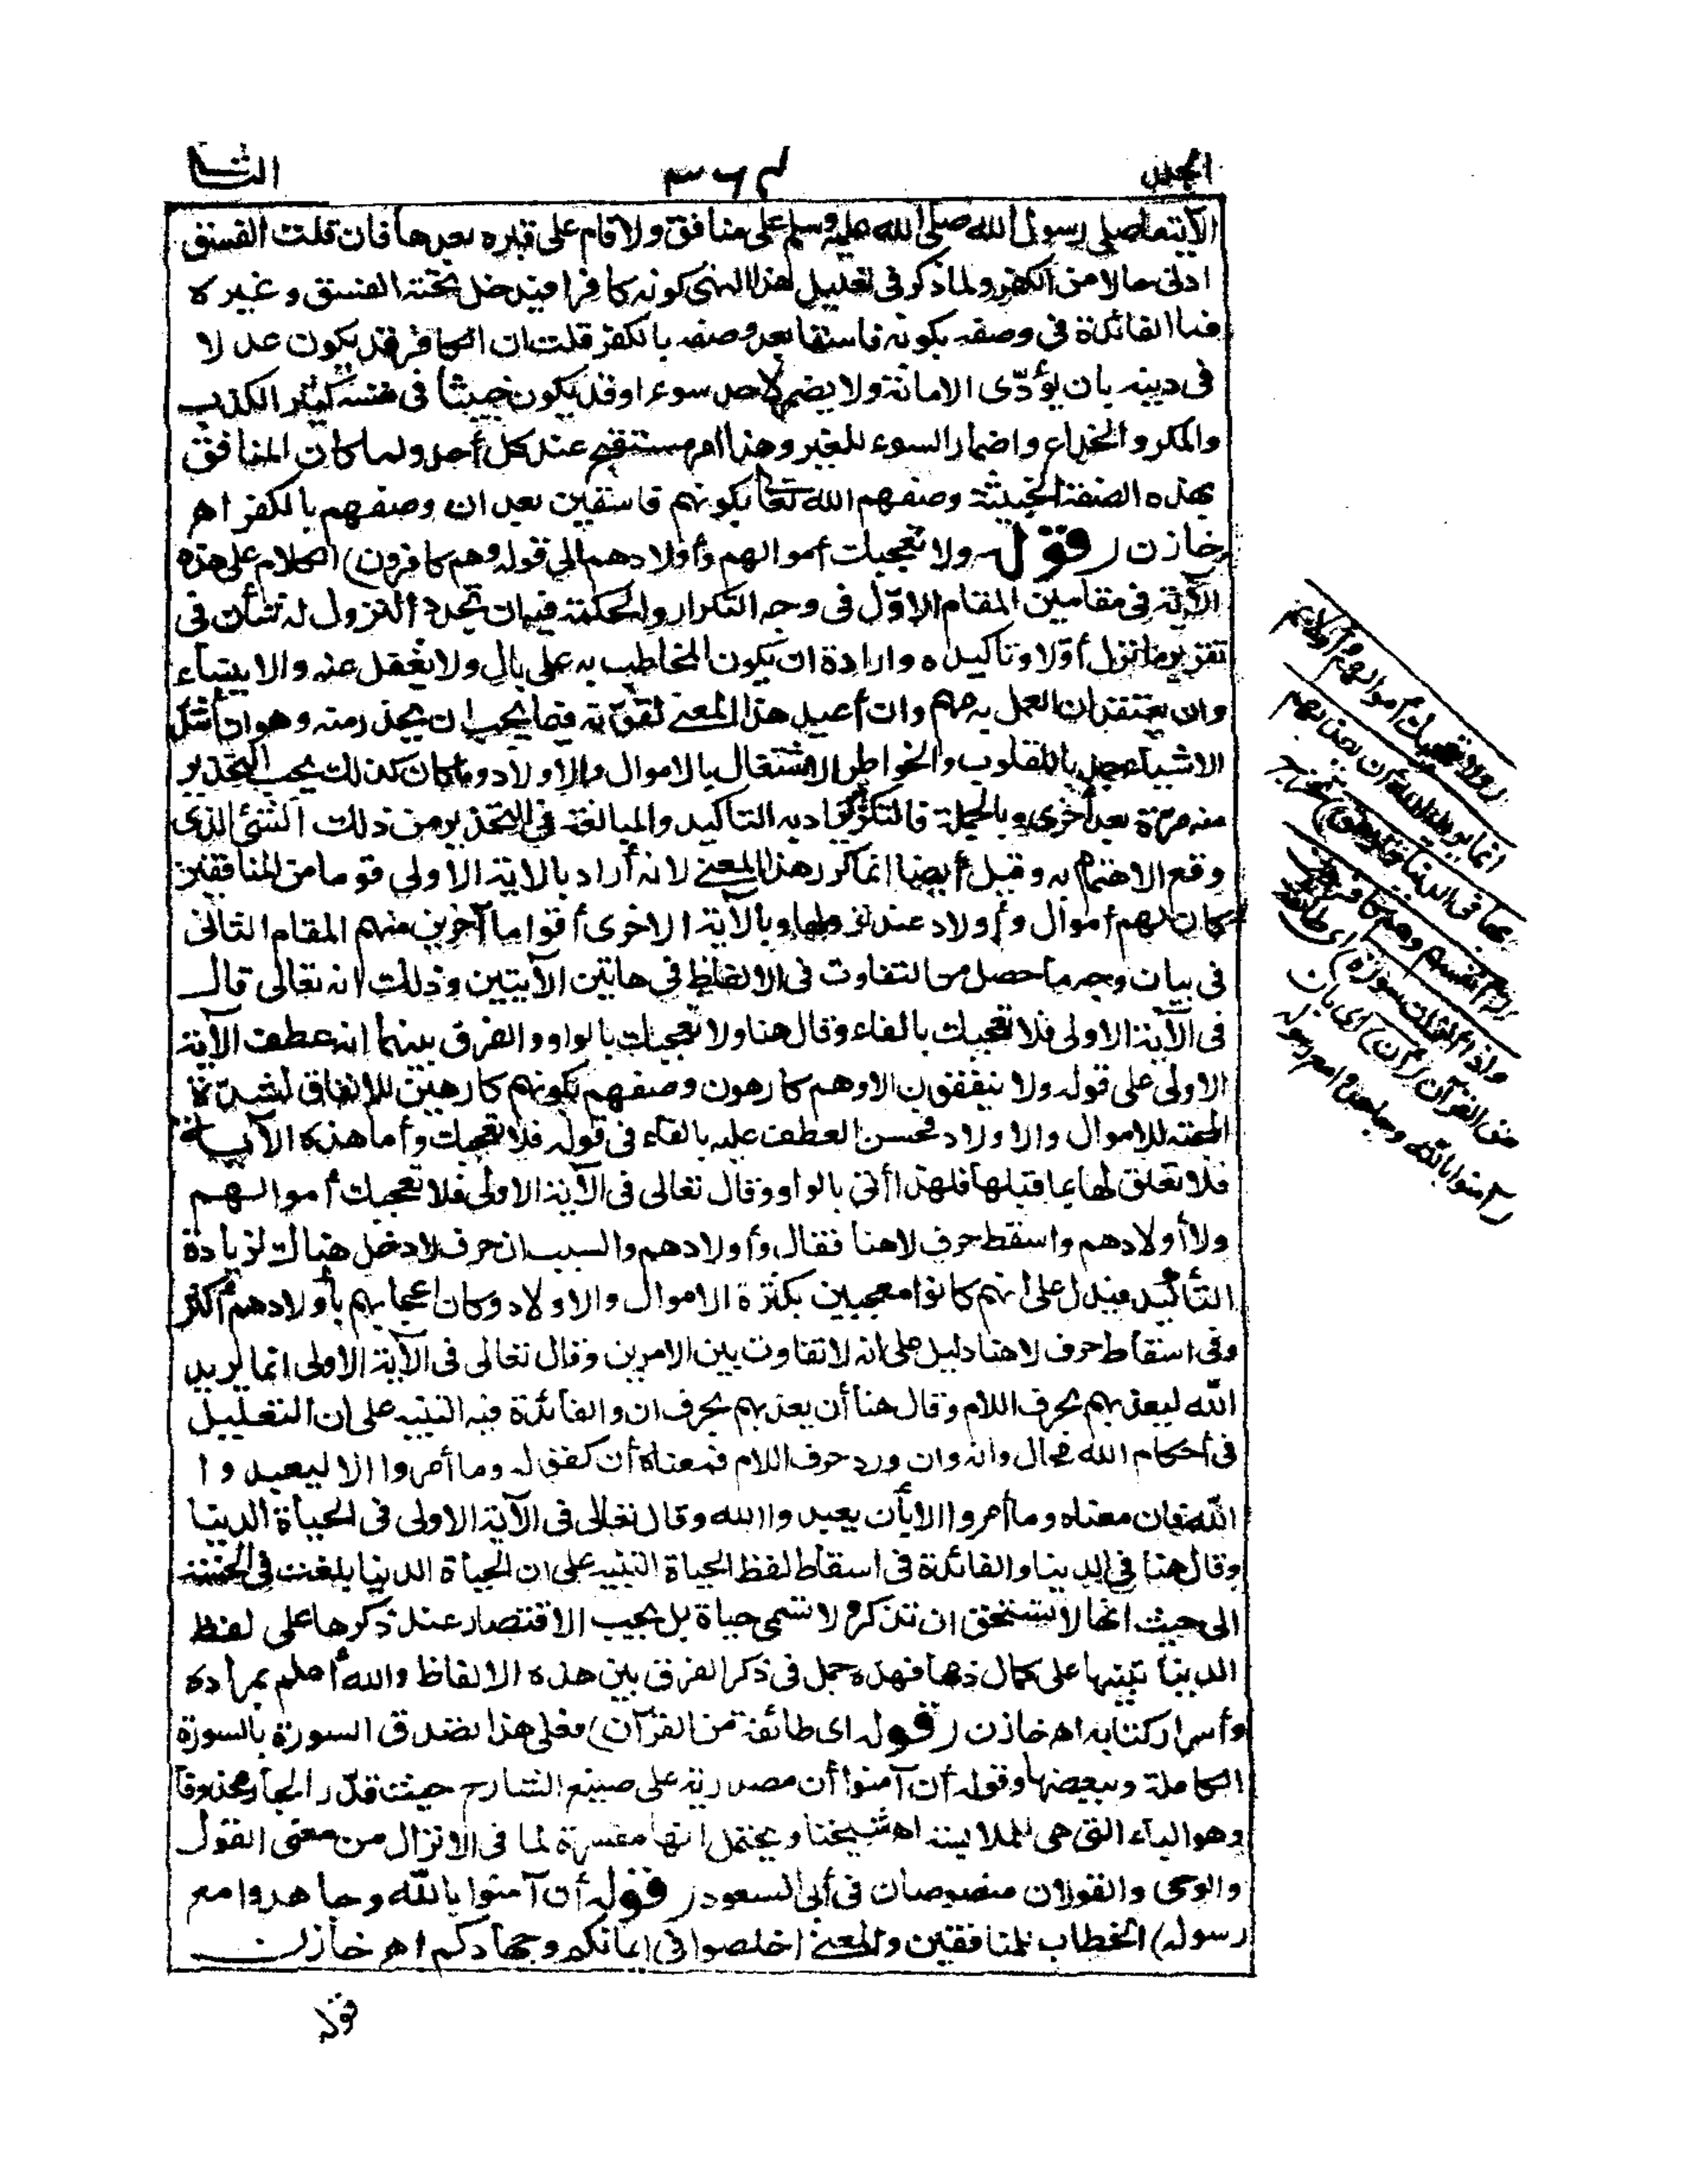 الجلد
٣٦٤
الثا
الآية فما صلى رسول الله صلى الله عليه وسلم على منافق ولا قام على قبره بعدها فان قلت الفسق
ادنى حالا من الكفر ولما ذكر فى تعليل هذا النهى كونه كافرا فيدخل تحته الفسق وغيره
فما الفائدة فى وصفه بكونه فاسقا بعد وصفه بالكفر قلت ان الكافر قد يكون عدلا
فى دينه بان يؤدّى الامانة ولا يضمر لاحد سوء اوقد يكون خبيثا فى نفسه كثير الكذب
والمكر والخداع واضمار السوء للغير وهذا امر مستقبح عند كل أحد ولما كان المنافق
بهذه الصفة الخبيثة وصفهم الله تعالى بكونهم فاسقين بعد ان وصفهم بالكفر اهـ
خازن (قوله ولا تعجبك أموالهم وأولادهم الى قوله وهم كافرون) الكلام على هذه
الآية فى مقامين المقام الاوّل فى وجه التكرار والحكمة فيه ان تجدد النزول له شأن فى
تقرير ما نزل أوّلا وتأكيده وارادة ان يكون المخاطب به على بال ولا يغفل عنه ولا ينساه
وان يعتقد ان العمل به مهم وان أعيد هذا المعنى لقوّته فيما يجب ان يحذر منه وهو ان أشدّ
الاشياء جذبا للقلوب والخواطر الاشتغال بالاموال والاولاد وما كان كذلك يجب التحذير
منه مرة بعد أخرى وبالجملة فالتكرير يراد به التاكيد والمبالغة فى التحذير من ذلك الشئ الذى
وقع الاهتمام به وقيل أيضا انما كرر هذا المعنى لانه أراد بالاية الاولى قوما من المنافقين
كان لهم أموال وأولاد عند نزولها وبالآية الاخرى أقواما آخرين منهم المقام الثانى
فى بيان وجه ما حصل من التفاوت فى الالفاظ فى هاتين الآيتين وذلك انه تعالى قال
فى الآية الاولى فلا تعجبك بالفاء وقال هنا ولا تعجبك بالواو والفرق بينهما انه عطف الآية
الاولى على قوله ولا ينفقون الا وهم كارهون وصفهم بكونهم كارهين للانفاق لشدة
المحبة للاموال والاولاد فحسن العطف عليه بالفاء فى قوله فلا تعجبك وأما هذه الآية
فلا تعلق لها بما قبلها فلهذا أتى بالواو وقال تعالى فى الآية الاولى فلا تعجبك أموالهم
ولا أولادهم واسقط حرف لا هنا فقال وأولادهم والسبب ان حرف لا دخل هناك لزيادة
التأكيد فيدل على انهم كانوا معجبين بكثرة الاموال والاولاد وكان اعجابهم بأولادهم أكثر
وفى اسقاط حرف لا هنا دليل على انه لا تفاوت بين الامرين وقال تعالى فى الآية الاولى انما يريد
الله ليعذبهم بحرف اللام وقال هنا أن يعذبهم بحرف ان والفائدة فيه التنبيه على ان التعليل
فى أحكام الله محال وانه وان ورد حرف اللام فمعناه أن كقوله وما أمروا الا ليعبدوا
الله فان معناه وما أمروا الا بأن يعبدوا الله وقال تعالى فى الآية الاولى فى الحياة الدنيا
وقال هنا فى الدنيا والفائدة فى اسقاط لفظ الحياة التنبيه على ان الحياة الدنيا بلغت فى الخسة
الى حيث انها لا تستحق ان تذكر ولا تسمى حياة بل يجب الاقتصار عند ذكرها على لفظ
الدنيا تنبيها على كمال ذمها فهذه جمل فى ذكر الفرق بين هذه الالفاظ والله أعلم بمراده
وأسرار كتابه اهـ خازن (قوله اى طائفة من القرآن) فعلى هذا تصدق السورة بالسورة
الكاملة وببعضها وقوله أن آمنوا أن مصدرية على صنيع الشارح حيث قدّر الجار محذوفا
وهو الباء التى هى للملابسة اهـ شيخنا ويحتمل انها مفسرة لما فى الانزال من معنى القول
والوحى والقولان منصوصان فى أبى السعود (قوله أن آمنوا بالله وجاهدوا مع
رسوله) الخطاب للمنافقين والمعنى اخلصوا فى ايمانكم وجهادكم اهـ خازن
قوله
(ولا تعجبك أموالهم وأولادهم
انما يريد الله أن يعذبهم
بها فى الدنيا وتزهق) تخرج
(أنفسهم وهم كافرون
واذا أنزلت سورة) اى طائفة
من القرآن (أن) اى بان
(آمنوا بالله وجاهدوا مع رسوله